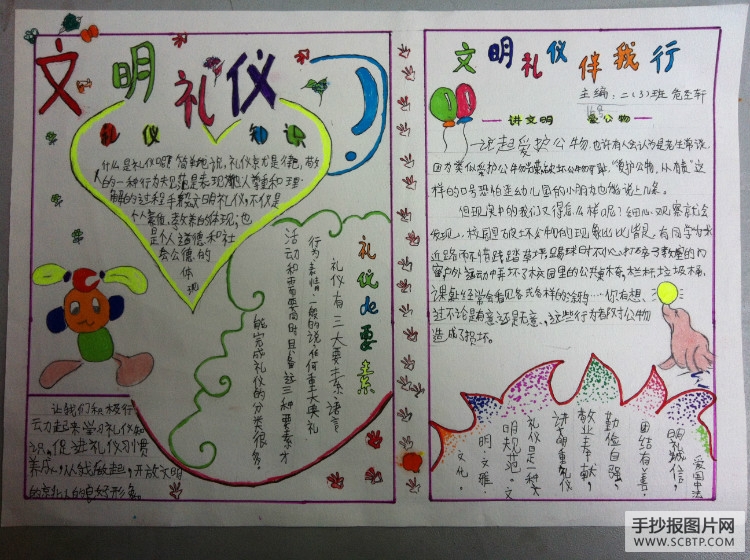 文明礼仪
礼仪知识
什么是礼仪呢?简单地说,礼仪就是律己、敬
人的一种行为
是表现他人尊重和理
解的过程手
文明礼仪,不仅是
个人素质、教养的体现,也
是个人道德和社
会公德的
体现
礼仪的要素
礼仪有三大要素:语言、
行为表情,一般的说,任何重大典礼
活动和
需要同时具备这三种要素才
能完成礼仪的分类很多。
让我们积极行
动起来学习礼仪知
识,促进礼仪习惯
养成,从我做起,开放文明
文明礼仪伴我行
主编:二(3)班
讲文明 爱公物
一说起爱护公物,也许有人会认为是老生常谈,
因为类似爱护公物
“爱护公物,从
”这
样的口号恐怕连幼儿里的小朋友也能说上几条。
但现实中的我们又得怎么样呢?细心观察就会
发现,校园里破坏公物的现象比比皆是,有同学为求
近路而不惜践踏草坪,踢球时不小心打碎了教室的
窗户外
弄坏了校园里的公共
栏杆垃圾桶,
课桌经常会看见各式各样的涂鸦……你有想
过不论是有意还是无意,这些行为都对公物
造成了损坏。
爱国守法
明礼诚信,
团结有善,
勤俭自强,
敬业奉献,
讲文明重礼仪
礼仪是一种文
明规范。文
明,文雅,
文化。
手抄报图片网
WWW.SCBTP.COM